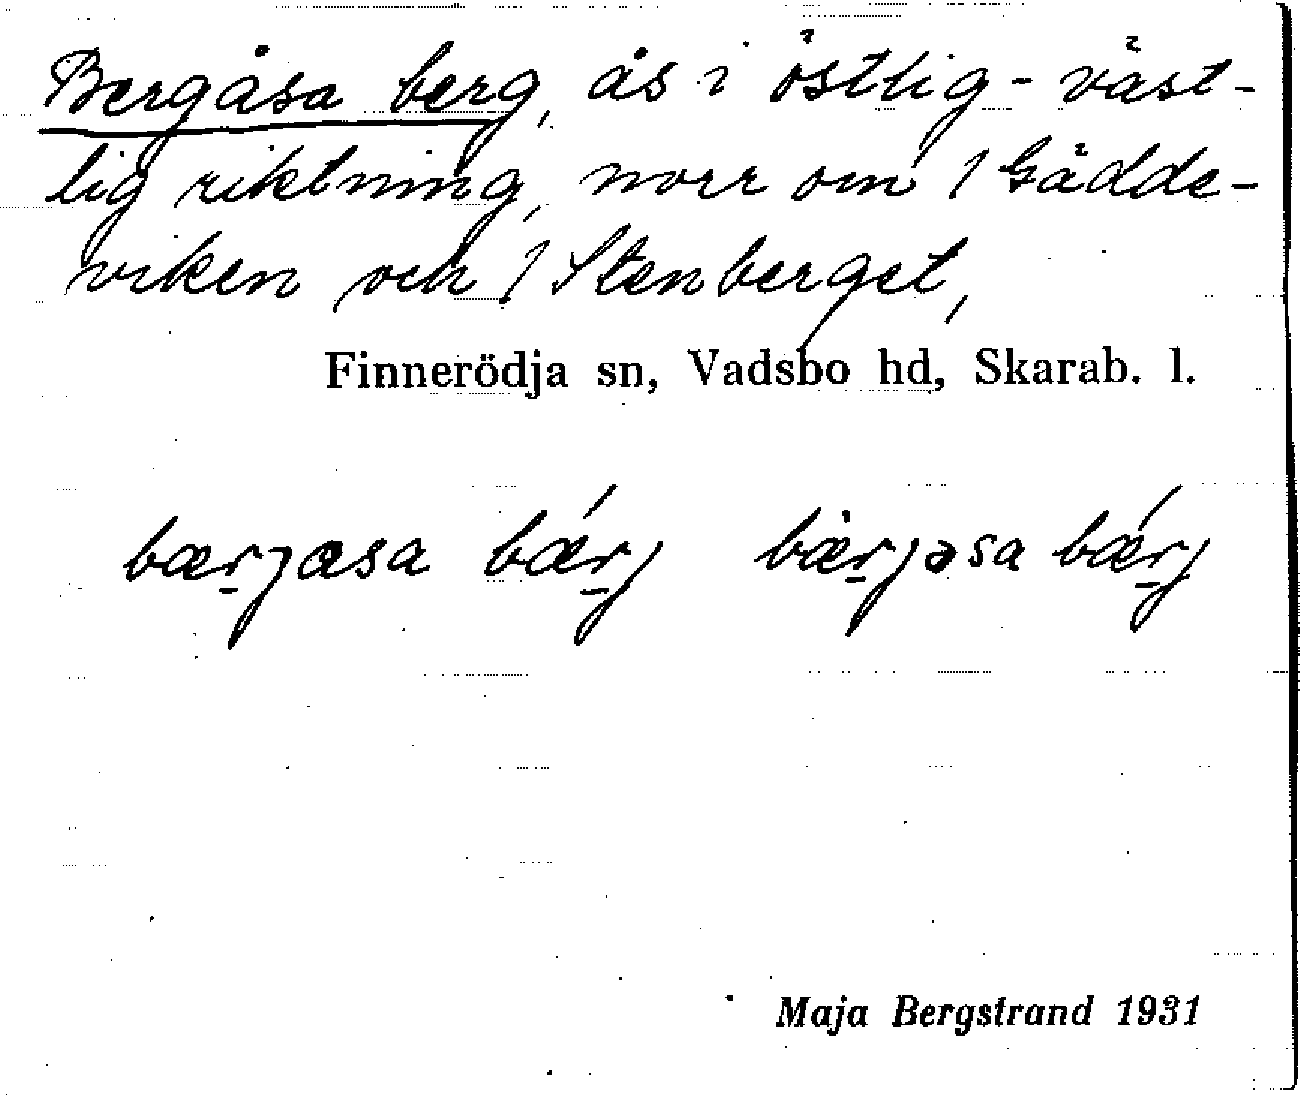 Bergåsa berg, ås i östlig-väst-
lig riktning, norr om 1 Gädde-
viken och 1 Stenberget,
Finnerödja sn, Vadsbo hd, Skarab. l.
bær̲jæsa bǽr̲j bær̲jəsa bǽr̲j
Maja Bergstrand 1931